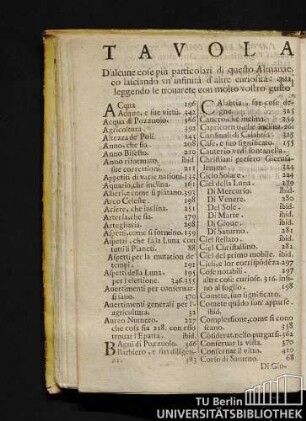 TAVOLA
D'alcune cose più particolari di questo Almanac
co lasciando vn'infinità d'altre curiosità: quia
leggendo le trouarete con molto vostro gusto
Acqua 196
Acque, e sue virtù. 342
Acqua di Pozzuolo. 366
Agricoltura. 392
Altezza de' Poli. 245
Anno, che sia 208
Anno Bisesto. 210
Anno riformato, ibid
sue correttioni. 218
Appetiti di varie nationi. 135
Aquario, che inclina. 261
Arco Celeste. 198
Ariete, che inclina. 251
Arteria, che sia. 379
Artegliaria. 298
Aspetti, come si formino. 159
Aspetti, che fa la Luna con
tutti i Pianeti. 88
Aspetti per la mutation de
tempi. 292
Aspetti della Luna. 195
per l'elettione. 346. 355
Auertimenti per conseruar
si sano. 370
Auertimenti generali per l'-
agricoltura. 32
Aureo Numero. 227
che cosa sia 218. con esso
trouar l'Epatta. ibid.
Bagni di Pozzuolo. 366
Barbiero, e sua diligen-
za. 383
Calabria, sue cose de-
gne. 325
Cancro, che inclina. 254
Capricorno che inclina. 261
Cardinali di Calabria. 326
Cafe, e suo significato. 155
Cauterio vedi fontanella.
Christiani persero Gierusa-
lemme. 234
Ciclo Solare. 224
Ciel della Luna. 279
Di Mercurio. ibid.
Di Venere. 280
Del Sole. ibid.
Di Marte. ibid.
Di Gioue. ibid.
Di Saturno. 281
Ciel stellato. ibid.
Ciel Christallino. 281
Ciel del primo mobile. ibid.
Cieli, e lor corrispodeza. 297
Cose notabili. 297
altre cose curiose. 316. in-
sino al foglio. 198
Comete, suo significato.
Comete quãdo son' apparse
ibid.
Complessione, come si cono
scano. 358
Considerat. nello purgarsi. 362
Conseruar la vista. 370
Conseruar il vino. 410
Corso di Saturno. 68
Di Gio-
TU Berlin
UNIVERSITÄTSBIBLIOTHEK